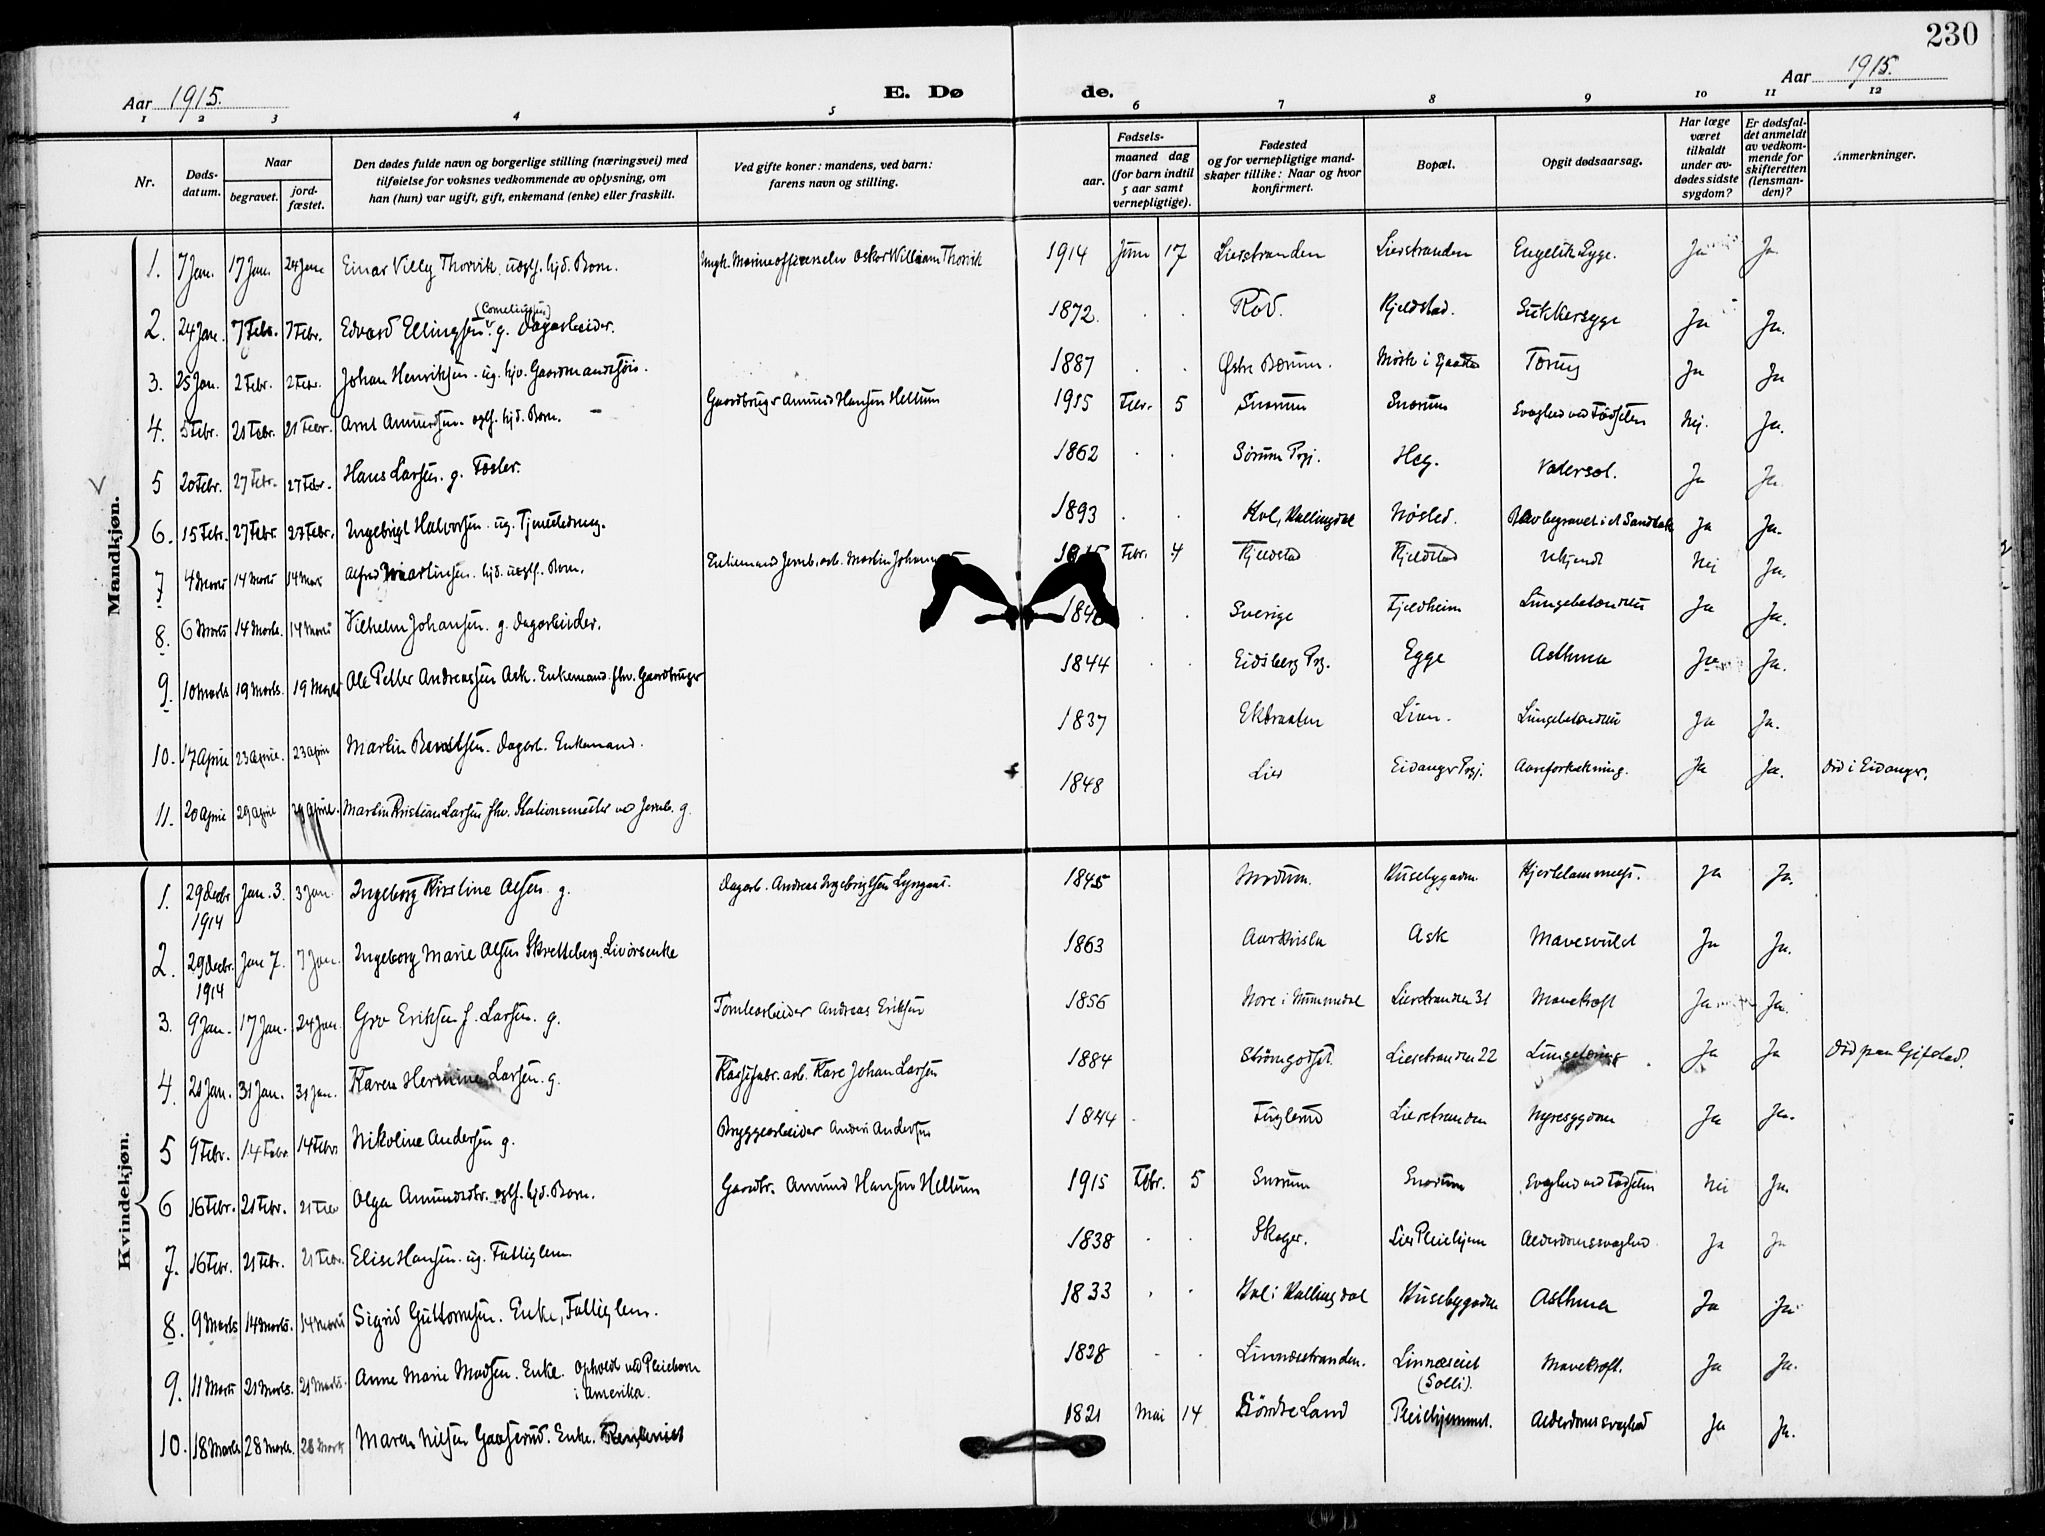 230
Aar 1915.
E. Døde.
Aar 1915.
1 2 3 4 5 6 7 8 9 10 11 12
Nr.
Døds-datum.
Naar
begravet.
jord-fæstet.
Den dødes fulde navn og borgerlige stilling (næringsvei) med
tilføielse for voksnes vedkommende av oplysning, om
han (hun) var ugift, gift, enkemand (enke) eller fraskilt.
Ved gifte koner: mandens, ved barn:
farens navn og stilling.
Fødsels-
aar.
maaned dag
(for barn indtil
5 aar samt
vernepligtige).
Fødested
og for vernepligtige mand-
skaper tillike: Naar og hvor
konfirmert.
Bopæl.
Opgit dødsaarsag.
Har læge
været
tilkaldt
under av-
dødes sidste
sygdom?
Er dødsfal-
det anmeldt
av vedkom-
mende for
skifteretten
(lensman-
den)?
Anmerkninger.
Mandkjøn.
1. 7 Jan. 17 Jan. 24 Jan Einar Villy Thorvik. uegtf. hjd. Barn. Oskar William Thorvik 1914 Juni 17 Lierstranden Lierstranden Engelsk Syge. Ja Ja.
(Corneliussen)
2. 24 Jan. 7 Febr. 7 Febr. Edvard Ellingsen. g. Dagarbeider. 1872. Rød. Kjeldstad. Sukkersyge Ja Ja.
3. 25 Jan. 2 Febr. 2 Febr. Johan Henriksen. ug. Gaardmandssøn. 1887 Østre Bærum. Mørk i Tæring Ja Ja
4. 5 Febr. 21 Febr. 21 Febr. Arnt Amundsen. egtf. hjd. Barn. Gaardbruger Amund Hansen Heltum 1915 Febr. 5 Snarum Snarum Svaghed ved Fødselen Nei. Ja.
5 20 Febr. 27 Febr. 27 Febr. Hans Larsen. g. Fosler. 1862 Sørum Prgj. Heg. Vatersot. Ja Ja.
6. 15 Febr. 27 Febr 27 Febr. Ingebrigt Halvorsen. ug. Tjenestedreng. 1893 Hol, Hallingdal Nøsted. Blev begravet i et Sandtak Ja Ja.
7 4 Marts 14 Marts 14 Mars Alfred Martinsen. hjd. uegtf. Barn. Enkemand Jernb. arb. Martin 1915 Febr. 4 Kjeldstad Kjeldstad Ukjendt Nei Ja.
8. 6 Marts 14 Marts. 14 Marts Vilhelm Johansen. g. Dagarbeider. Sverige Fjeldheim Lungebetændelse Ja Ja.
9. 10 Marts 19 Marts. 19 Marts Ole Petter Andreassen Ask. Enkemand. fhv. Gaardbruger 1844 Eidsberg Prgj. Egge Asthma Ja Ja.
10. 17 April 23 April. 23 April Martin Berntsen. Dagarb. Enkemand. 1837 Ekbraaten Lian. Lungebetændelse Ja Ja.
11. 20 April 29 April 29 April. Martin Kristian Larsen fhv. Stationsmester ved Jernb. g. 1848 Lier Eidanger Prgj. Aareforkalkning. Ja Ja. Død i Eidanger.
Kvindekjøn.
1. 29 Decbr 1914 Jan. 3. 3 Jan. Ingeborg Kirstine Olsen g. Dagarb. Andreas Ingebrigtsen 1845 Modum. Husebygaden. Hjertelammelse. Ja Ja.
2. 29 Decbr. 1914 Jan 7. 7 Jan. Ingeborg Marie Olsen Skretteberg. Livørsenke 1863 Aarkvisla Ask Mavesvulst Ja Ja.
3. 9 Jan. 17 Jan. 24 Jan. Gro Eriksen f. Larsen. g. Tomtearbeider Andreas Eriksen 1856 Nore i Nummedal Lierstranden 31 Mavekræft Ja Ja.
4. 21 Jan. 31 Jan. 31 Jan. Karen Hermine Larsen. g. Kassefabr. arb. Kare Johan Larsen 1884 Strømgodset. Lierstranden 22 Lungetæring Ja Ja Død paa Gifstad.
5 9 Febr. 14 Febr. 14 Febr Nikoline Andersen g. Bryggearbeider Anders Andersen 1844 Fuglerud Lierstranden Nyresygdom Ja Ja.
6 16 Febr. 21 Febr. 21 Febr Olga Amundsdtr. egtf. hjd. Barn. Gaardbr. Amund Hansen Heltum 1915 Febr. 5 Snarum Snarum Svaghed ved Fødselen Nei Ja.
7. 16 Febr. 21 Febr. 21 Febr. Elise Hansen. ug. Fattiglem 1838 Skoger. Lier Pleiehjem Alderdomssvaghed Ja Ja
8. 9 Marts 14 Marts. 14 Marts Sigrid Guttormsen. Enke, Fattiglem. 1833 Hol i Hallingdal Husebygaden Asthma Ja Ja
9. 11 Marts 21 Marts. 21 Marts. Anne Marie Madsen. Enke. Ophold ved Pleiebarn i Amerika. 1828 Linnæsstranden. Linnæseiet (Solli). Mavekræft. Ja Ja.
10. 18 Marts 28 Marts. 28 Marts Maren Nilsen Gaaserud. Enke. 1821 Mai 14 Søndre Land Pleiehjemmet. Alderdomssvaghed Ja Ja.